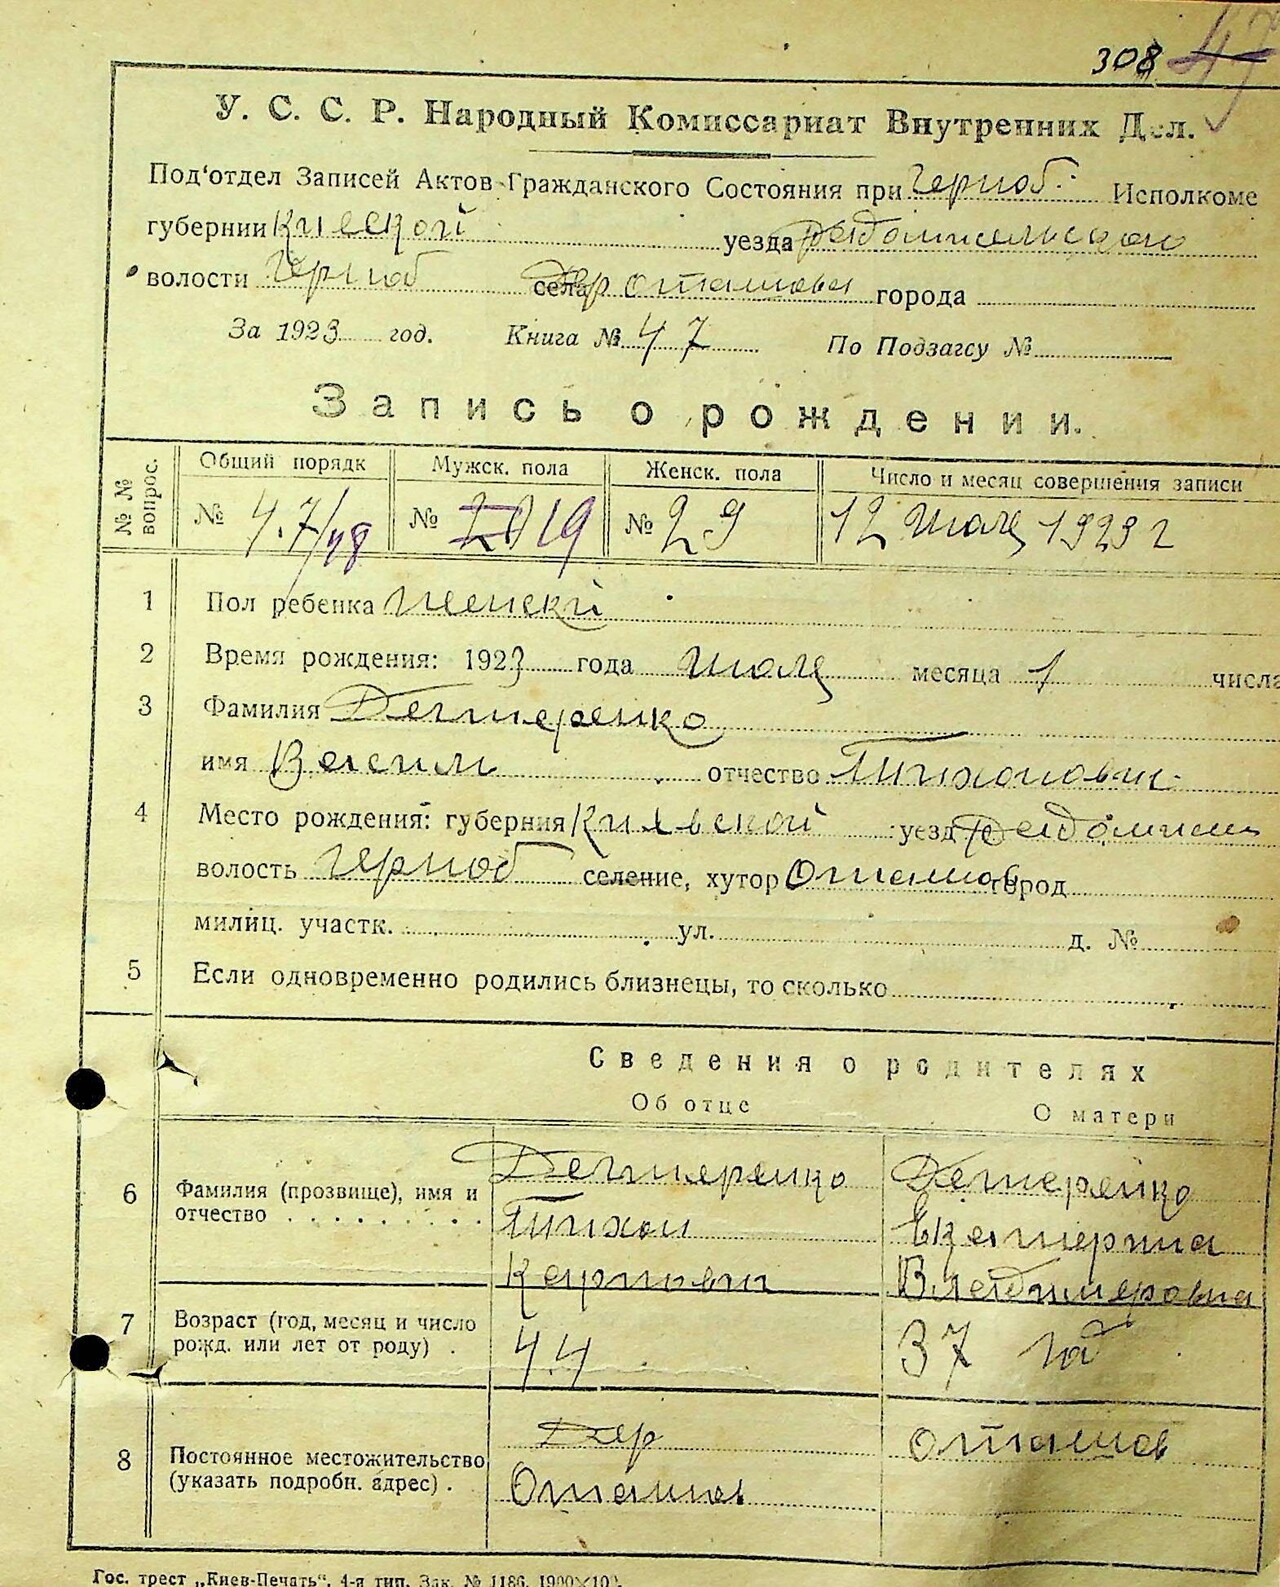 308 47
У. С. С. Р. Народный Комиссариат Внутренних Дел.
Под'отдел Записей Актов Гражданского Состояния при Черноб. Исполкоме
губернии Киевской уезда Радомысльского
волости Черноб села дер Оташова города
За 1923 год. Книга № 47 По Подзагсу №
Запись о рождении.
№ № вопрос. Общий порядк Мужск. пола Женск. пола Число и месяц совершения записи
№ 47/48 № 19 № 29 12 Июля 1923 г
1 Пол ребенка женски
2 Время рождения: 1923 года Июля месяца 1 числа
3 Фамилия Дегтеренко
имя отчество Тихонович
4 Место рождения: губерния Киевской уезд Радомысль
волость Черноб селение, хутор Оташов город
милиц. участк. ул. д. №
5 Если одновременно родились близнецы, то сколько
Сведения о родителях
Об отце О матери
6 Фамилия (прозвище), имя и отчество Дегтеренко Дегтеренко
Тихон Екатерина
Карпович Владимеровна
7 Возраст (год, месяц и число рожд. или лет от роду) . 44 37 год
8 Постоянное местожительство (указать подробн. адрес) . Дер Оташов
Оташов
Гос. трест „Киев-Печать“. 4-я тип. Зак. № 1186. 1900×100.